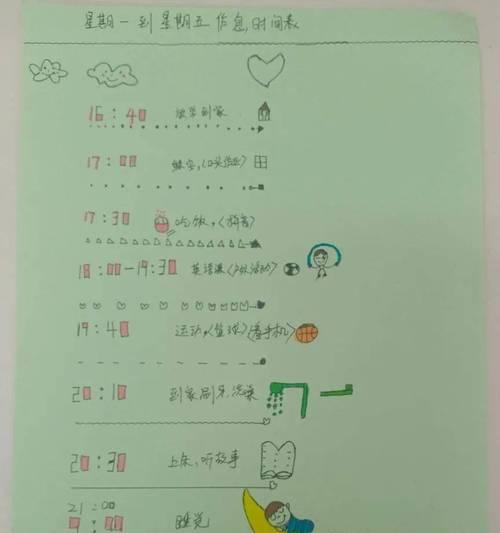 星期一到星期五作息,时间表
16:40 放学到家
17:00 练字,(口头作业)
17:30 吃饭,(拼音)
18:00-19:30 英语课(户外活动)
19:40 运动,(篮球)(看手机)
20:10 到家刷牙,洗澡
20:30 上床,听故事
21:00
睡觉